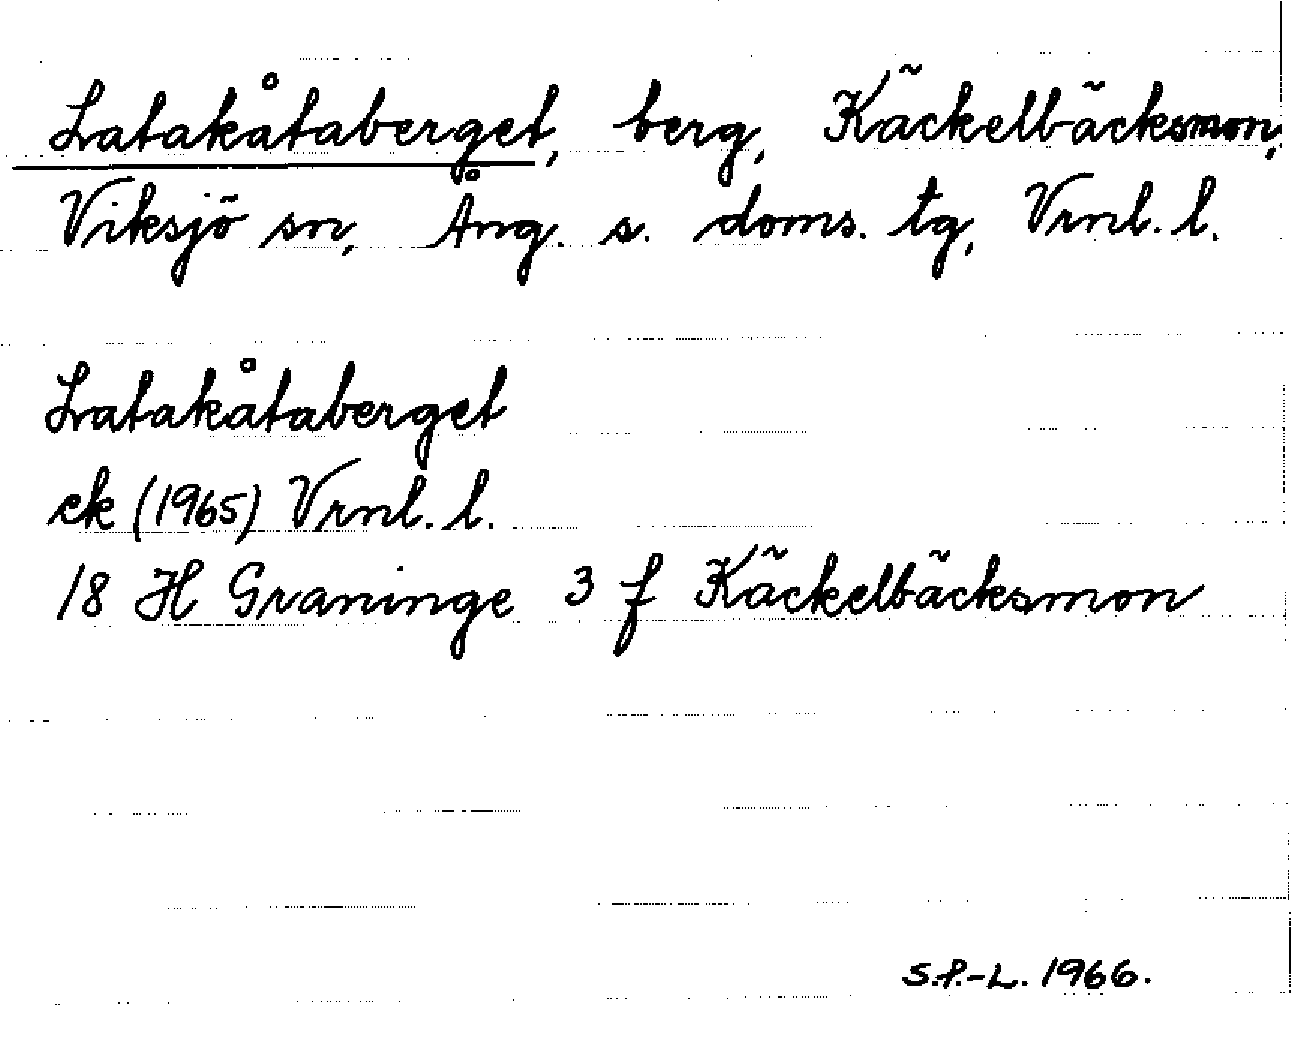 Latakåtaberget, berg, Käckelbäcksmon,
Viksjö sn, Ång. s. doms. tg, Vrnl. l.
Latakåtaberget
ek (1965) Vrnl. l.
18 H Graninge 3 f Käckelbäcksmon
S.P.-L. 1966.